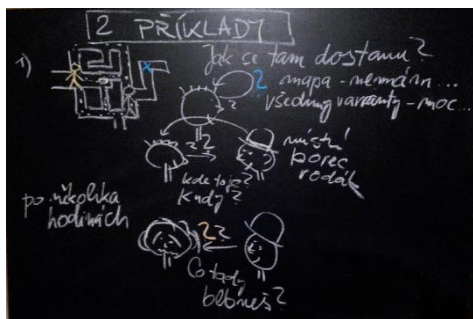 2 PŘÍKLADY
1)
Jak se tam dostanu?
? mapa - nemám...
všechny varianty - moc...
? ?
místní
borec
rodák
? ?
kde to je?
Kudy?
po několika
hodinách
? ?
Co tady
blbneš?